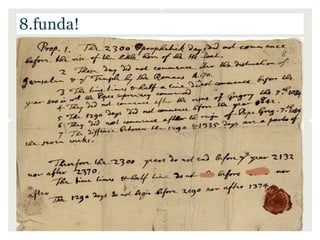 8.funda!
Prop. 1. The 2300 prophetick days did not commence
before the rise of the little horn of the He Goat.
2 Those day did not commence after the destruction of
Jerusalem & ye Temple by the Romans A.70.
3 The time times & half a time did not commence before the
year 800 in wch the Popes supremacy commenced
4 They did not commence after the reigne of Gregory the 7th. 1084
5 The 1290 days did not commence before the year 842.
6 They did not commence after the reigne of Pope Greg. 7th. 1084
7 The difference between the 1290 & 1335 days are a parts of
the seven weeks.
Therefore the 2300 years do not end before ye year 2132
nor after 2370.
The time times & half time do not before nor
after
The 1290 days do not begin before 2090 nor after 1374